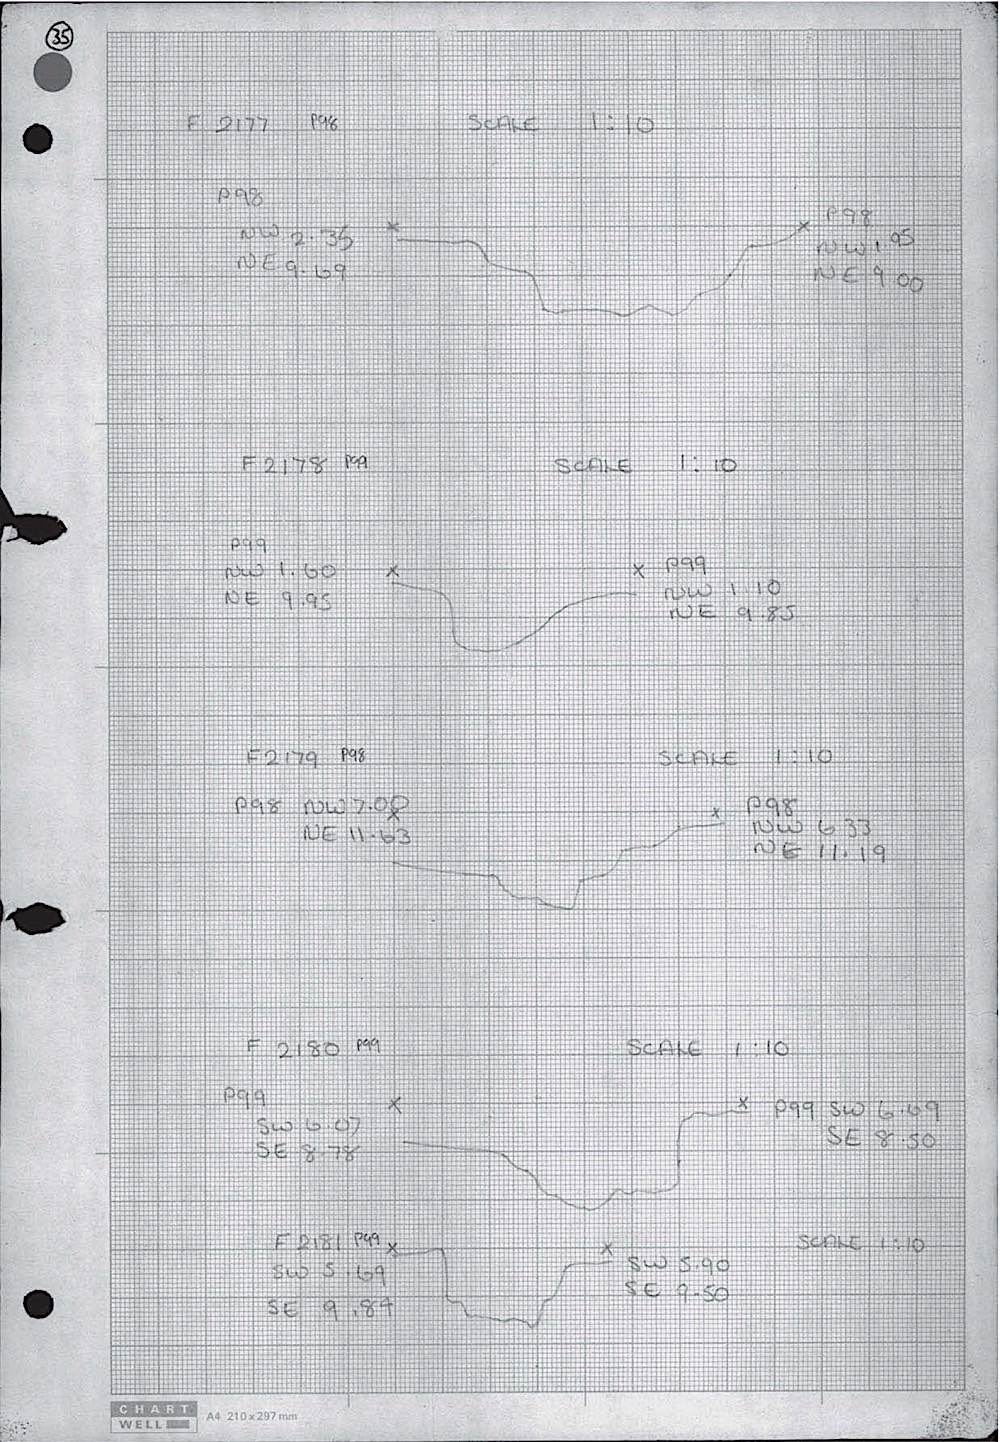 35
F 2177 P98 SCALE 1:10
P98
NW 2.35
NE 9.69
P98
NW 1.95
NE 9.00
F2178 P99 SCALE 1:10
P99
NW 1.60
NE 9.95
P99
NW 1.10
NE 9.85
F2179 P98 SCALE 1:10
P98 NW 7.00
NE 11.63
P98
NW 6.33
NE 11.19
F 2180 P99 SCALE 1:10
P99
SW 6.07
SE 8.78
P99 SW 6.69
SE 8.50
F 2181 P99 SCALE 1:10
SW 5.69
SE 9.84
SW 5.90
SE 9.50
CHART
WELL
A4 210 x 297 mm